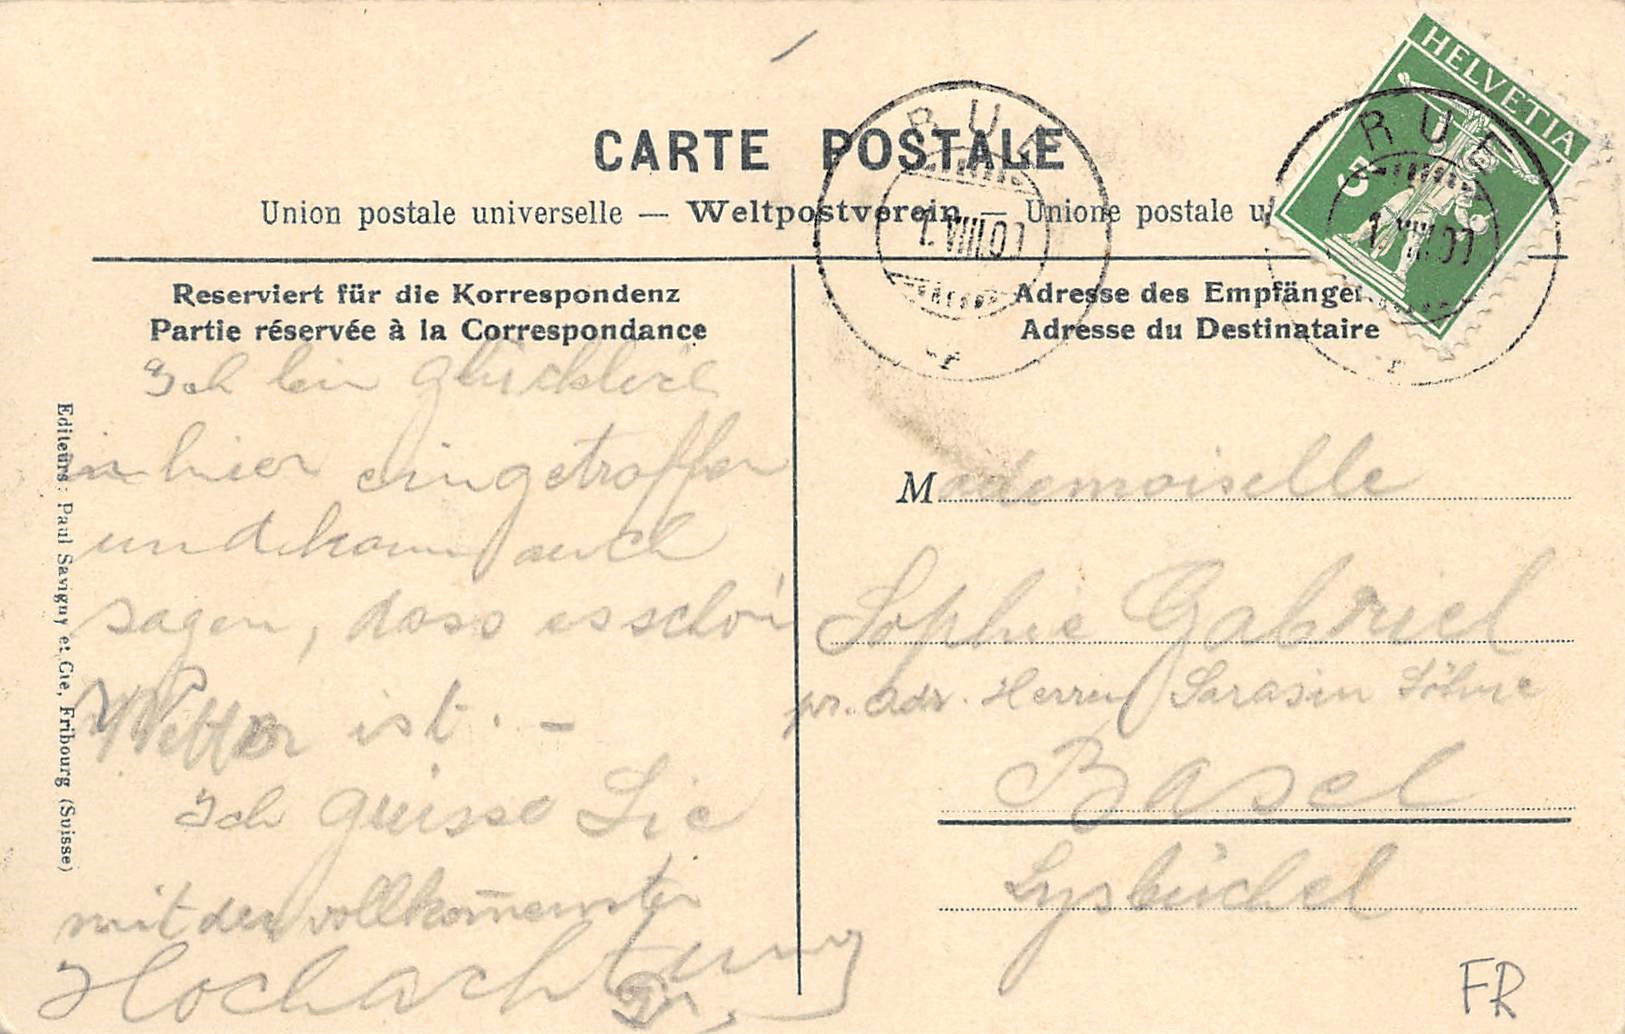 CARTE POSTALE
Union postale universelle — Weltpostverein — Unione postale u
Reserviert für die Korrespondenz
Partie réservée à la Correspondance
Ich bin glücklich
in hier eingetroffen
und kann auch
sagen, dass es schön
Wetter ist. —
Ich grüsse Sie
mit der vollkom̄enster
Hochachtung
Editeurs: Paul Savigny et Cie, Fribourg (Suisse)
HELVETIA
5
RUE
1.VIII.09
RUE
1.VIII.09
Adresse des Empfänger
Adresse du Destinataire
Mademoiselle
Sophie Gabriel
pr. Adr. Herren Sarasin Söhne
Basel
Lysbüchel.
FR